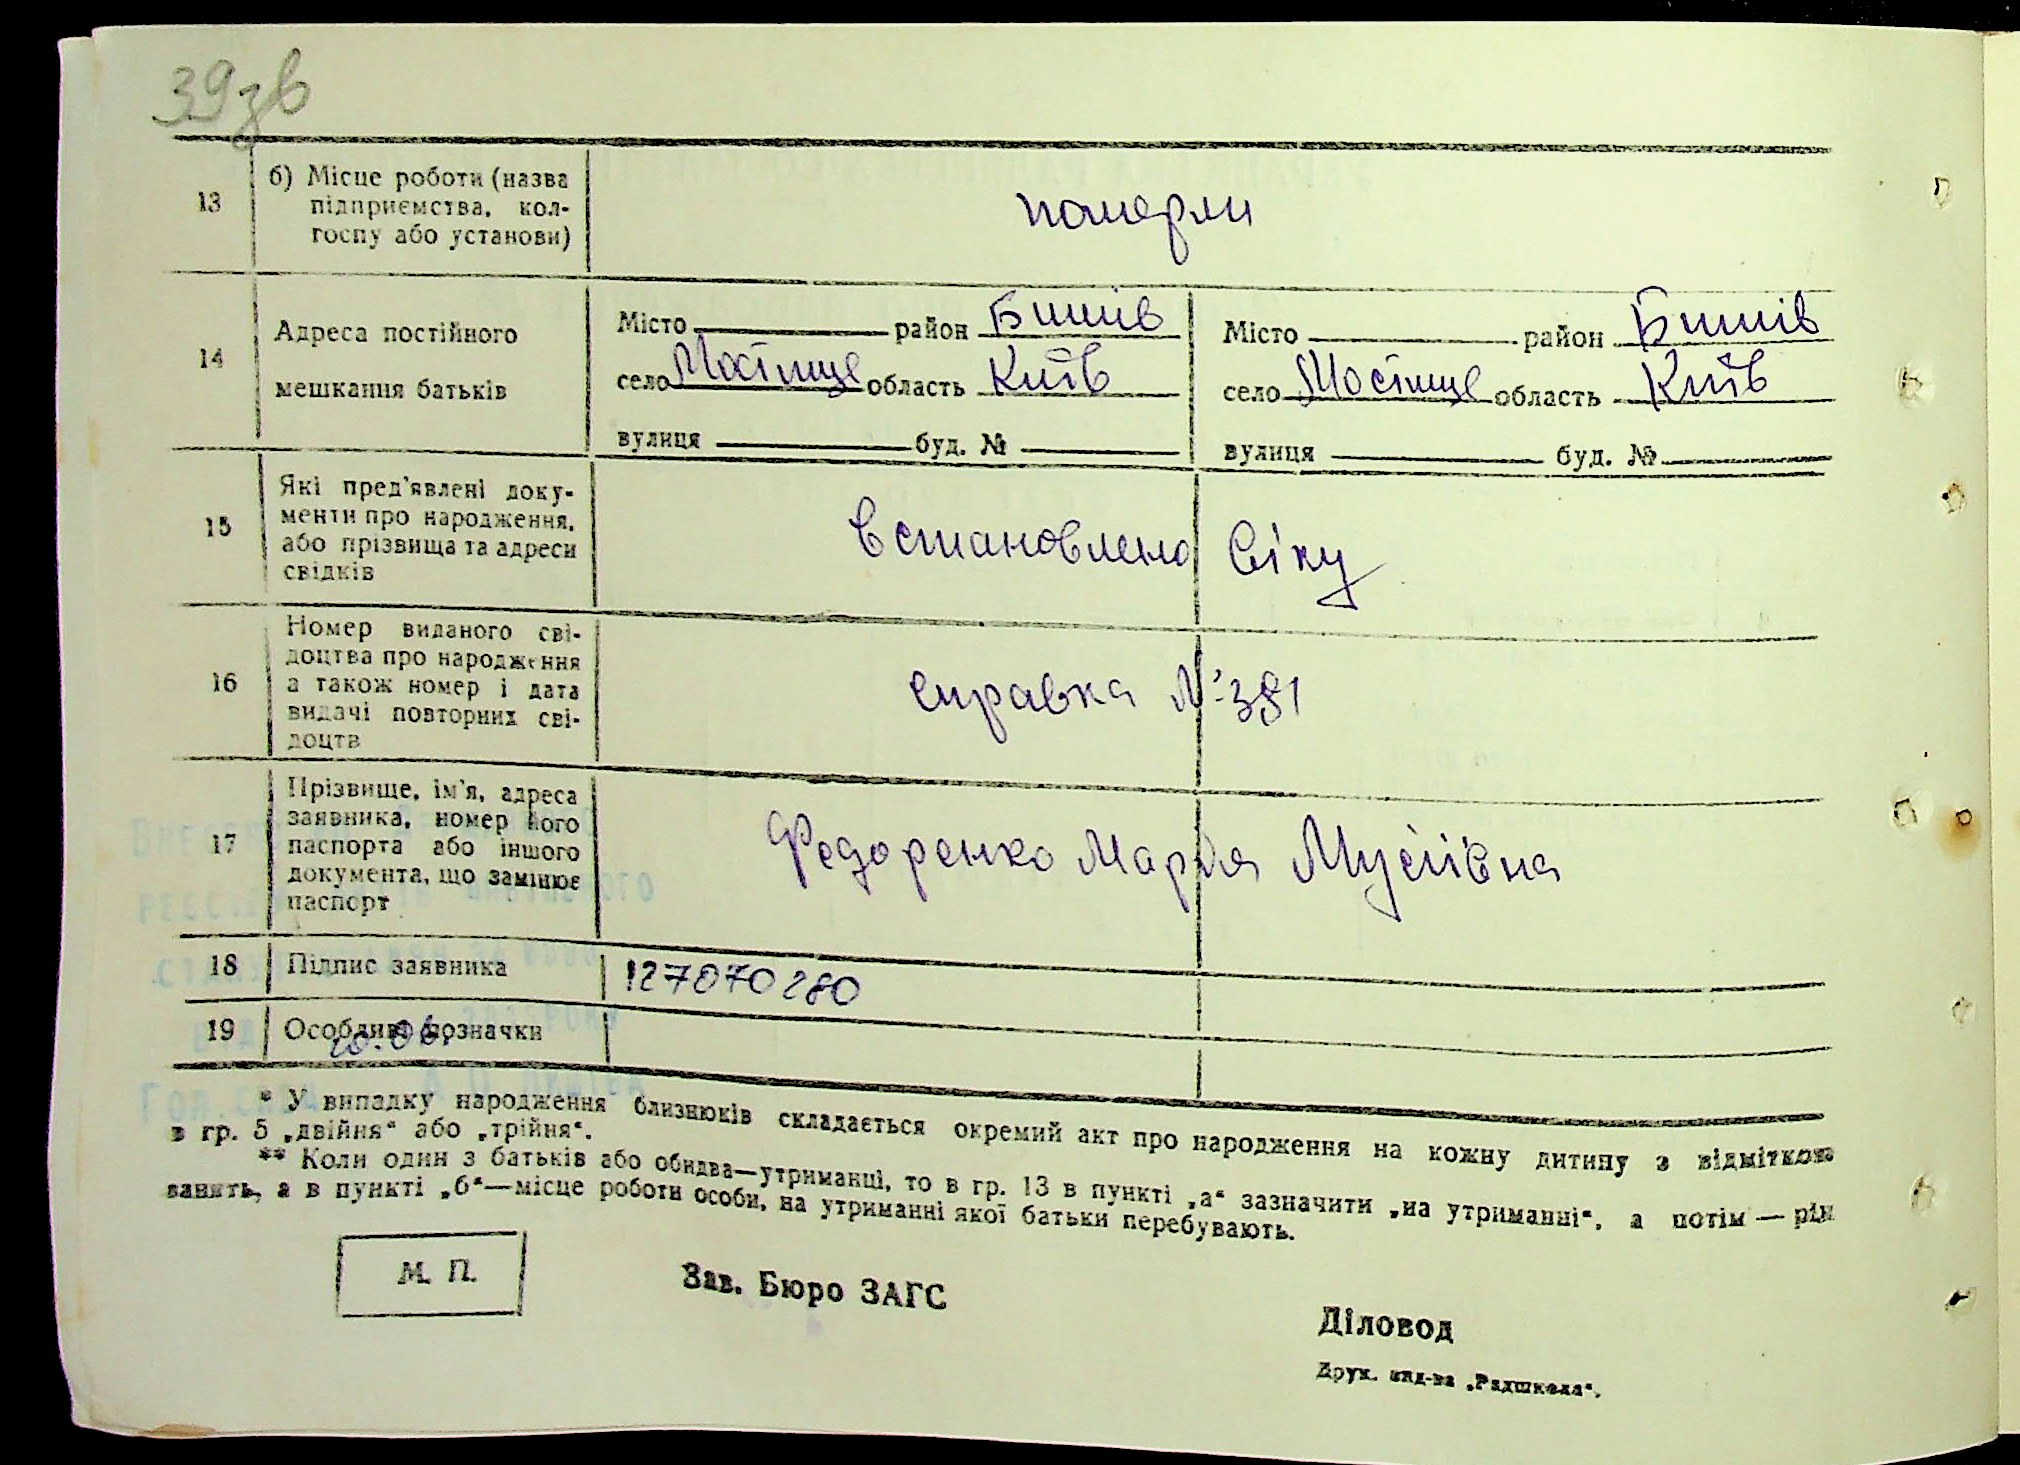 39зв
13 б) Місце роботи (назва
підприємства, кол-
госпу або установи)
померли
14 Адреса постійного
мешкання батьків
Місто район Бишів
село Мостище область Київ
вулиця буд. №
Місто район Бишів
село Мостище область Київ
вулиця буд. №
15 Які пред'явлені доку-
менти про народження,
або прізвища та адреси
свідків
Встановлено Віку
16 Номер виданого сві-
доцтва про народження
а також номер і дата
видачі повторних сві-
доцтв
справка № 381
17 Прізвище, ім'я, адреса
заявника, номер його
паспорта або іншого
документа, що замінює
паспорт
Федоренко Марія Мусіївна
18 Підпис заявника 127070280
19 Особливі позначки
* У випадку народження близнюків складається окремий акт про народження на кожну дитину з відміткою
в гр. 5 „двійня“ або „трійня“.
** Коли один з батьків або обидва—утриманці, то в гр. 13 в пункті „а“ зазначити „на утриманні“, а потім — рід
занять, а в пункті „б“—місце роботи особи, на утриманні якої батьки перебувають.
М. П.
Зав. Бюро ЗАГС
Діловод
Друк. вид-ва „Радшкола“.